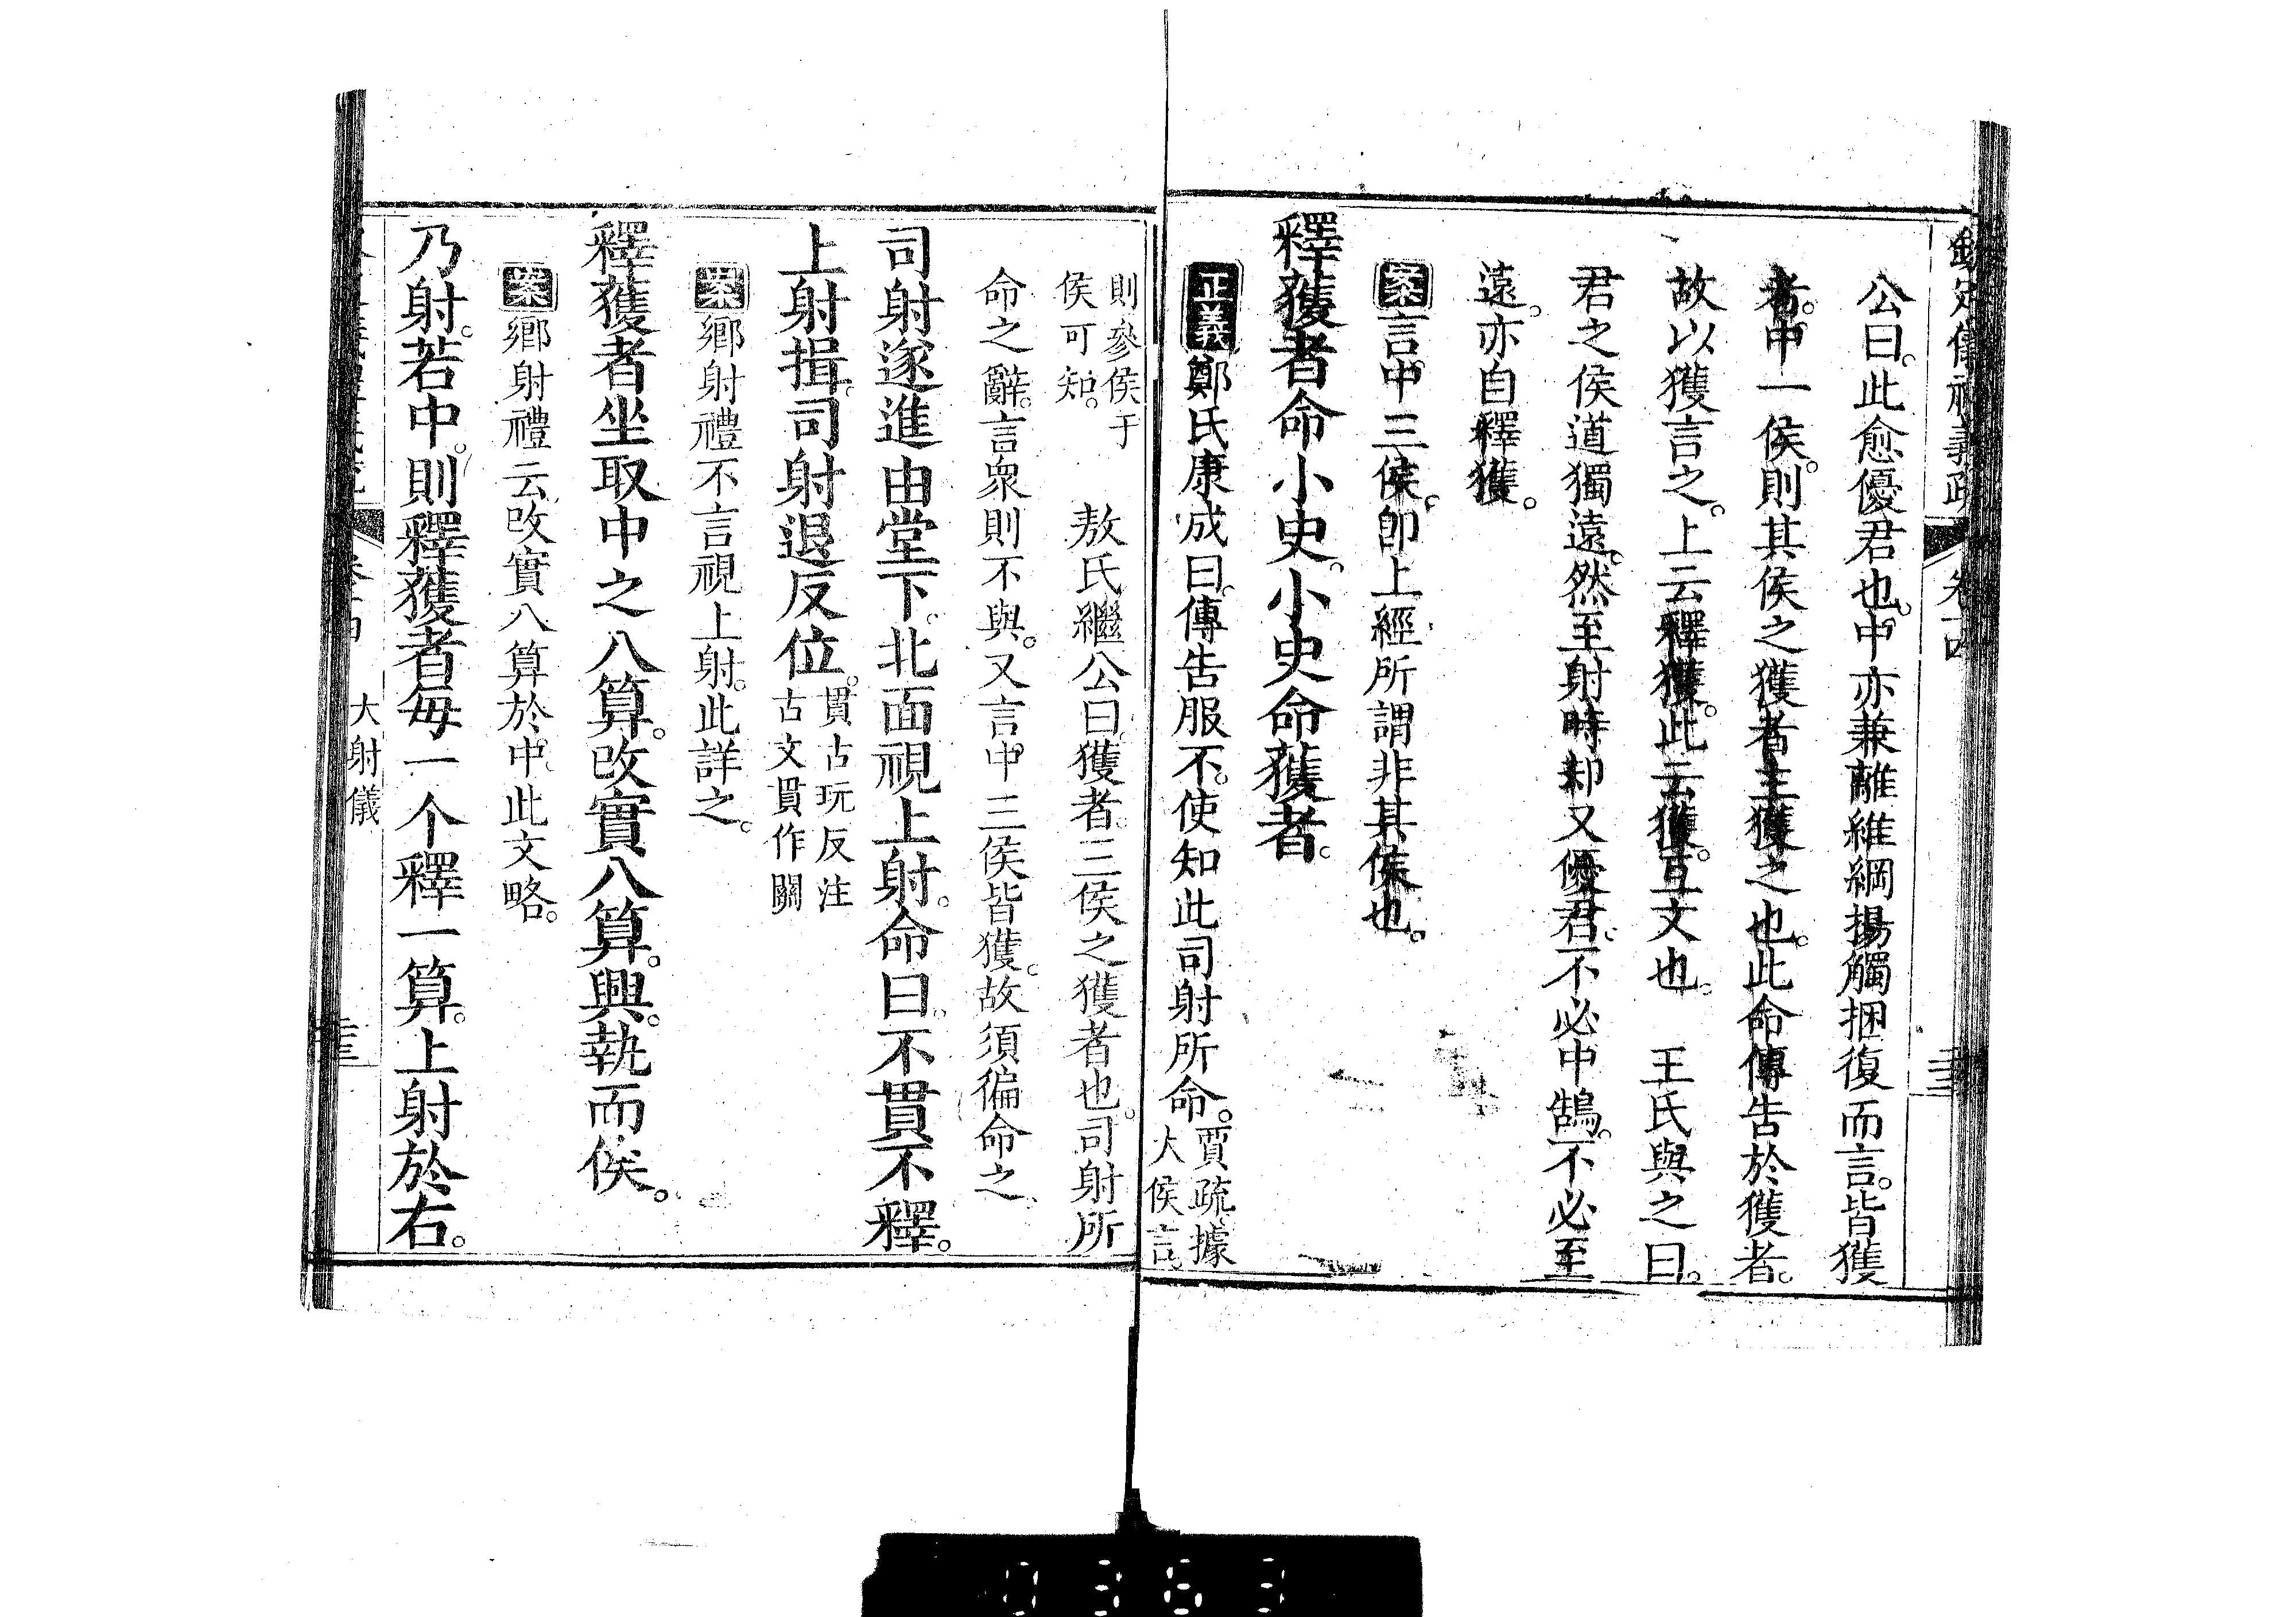 欽定儀禮義疏 卷十四
公曰。此愈優君也。中亦兼離維綱揚觸捆復而言。皆獲
者。中一侯。則其侯之獲者主獲之也。此命傳告於獲者。
故以獲言之。上云釋獲。此云獲。互文也。 王氏與之曰。
君之侯道獨遠。然至射時却又優君。不必中鵠。不必至
遠。亦自釋獲。
案言中三侯。卽上經所謂非其侯也。
釋獲者命小史。小史命獲者。
正義鄭氏康成曰。傳告服不。使知此司射所命。賈疏據
大侯言。
則參侯于
侯可知。
敖氏繼公曰。獲者。三侯之獲者也。司射所
命之辭。言衆則不與。又言中三侯皆獲。故須徧命之。
司射遂進由堂下。北面視上射。命曰。不貫不釋。
上射揖。司射退反位。貫古玩反注
古文貫作關
案鄉射禮不言視上射。此詳之。
釋獲者坐取中之八算。改實八算。興。執而俟。
案鄉射禮云改實八算於中。此文略。
乃射。若中。則釋獲者每一个釋一算。上射於右。
大射儀
0363